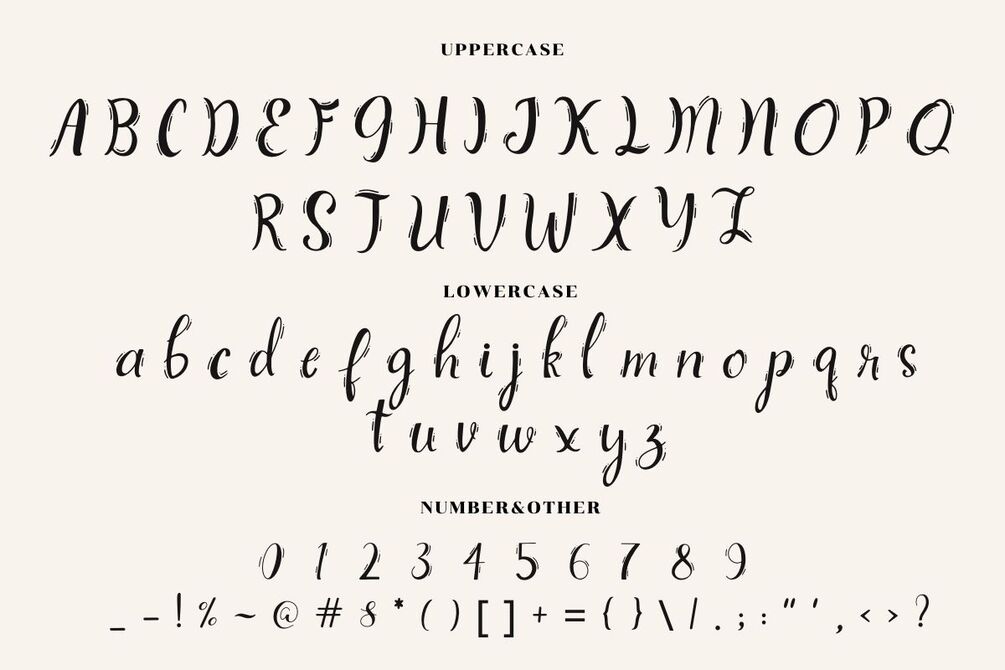 UPPERCASE
A B C D E F G H I J K L M N O P Q
R S T U V W X Y Z
LOWERCASE
a b c d e f g h i j k l m n o p q r s
t u v w x y z
NUMBER&OTHER
0 1 2 3 4 5 6 7 8 9
_ - ! % ~ @ # & * ( ) [ ] + = { } \ / . ; : " ' , < > ?